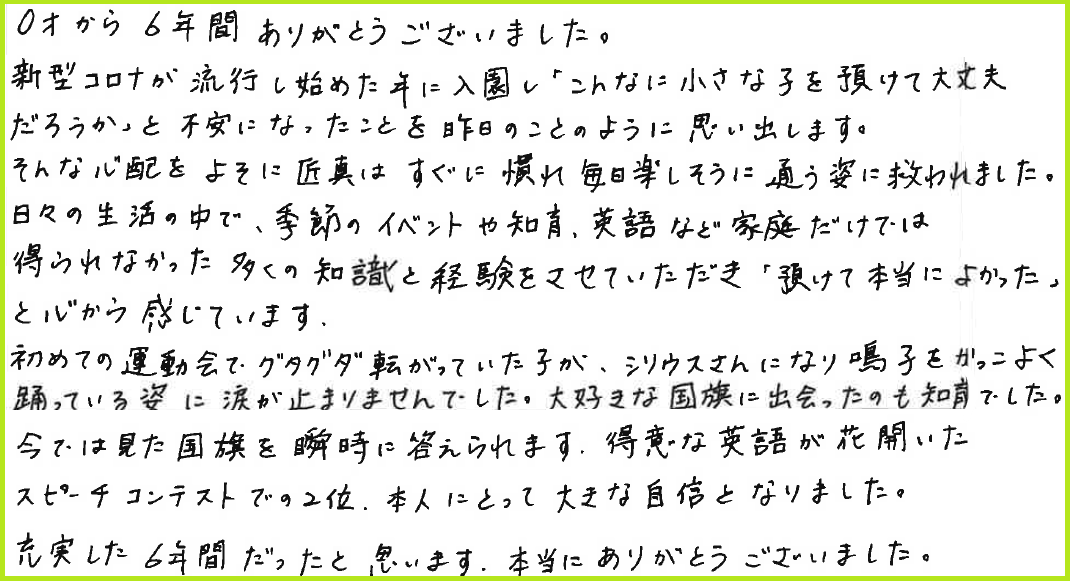 0才から6年間ありがとうございました。
新型コロナが流行し始めた年に入園し「こんなに小さな子を預けて大丈夫
だろうか」と不安になったことを昨日のことのように思い出します。
そんな心配をよそに匠真はすぐに慣れ毎日楽しそうに通う姿に救われました。
日々の生活の中で、季節のイベントや知育、英語など家庭だけでは
得られなかった多くの知識と経験をさせていただき「預けて本当によかった」
と心から感じています。
初めての運動会でグタグダ転がっていた子が、シリウスさんになり鳴子をかっこよく
踊っている姿に涙が止まりませんでした。大好きな国旗に出会ったのも知育でした。
今では見た国旗を瞬時に答えられます。得意な英語が花開いた
スピーチコンテストでの2位、本人にとって大きな自信となりました。
充実した6年間だったと思います。本当にありがとうございました。